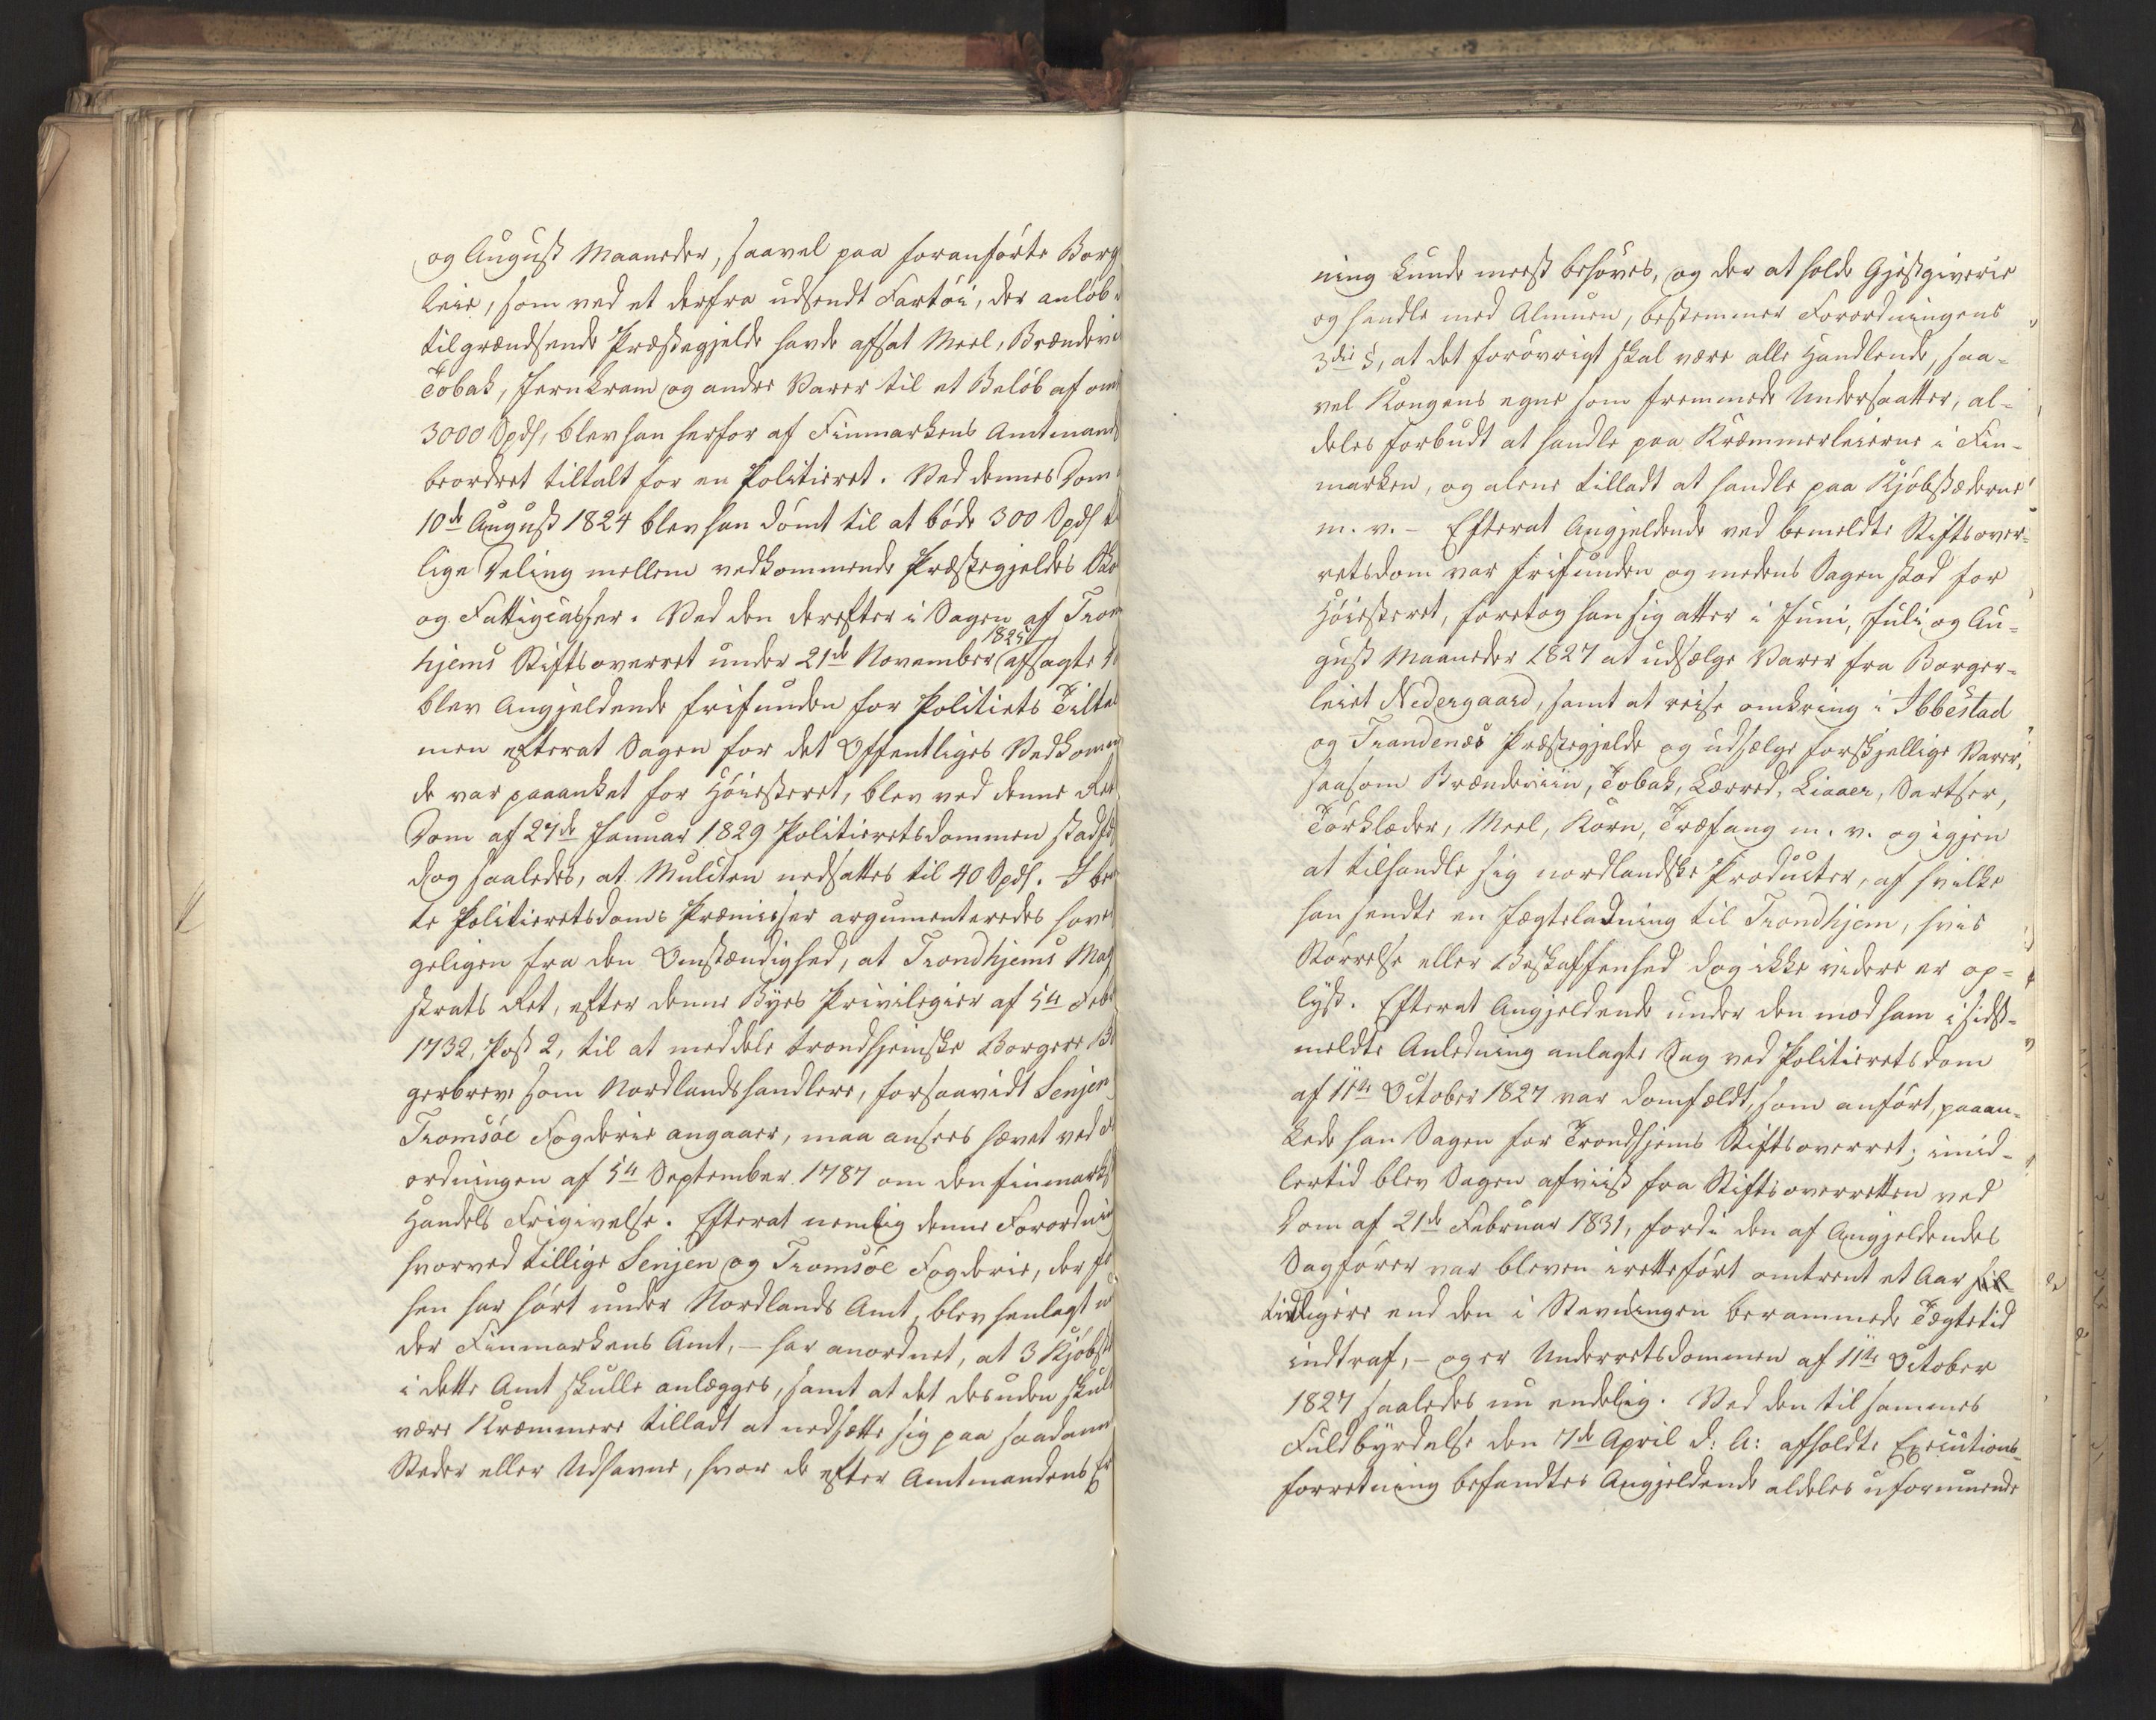 og August Maaneder, saavel paa foranførte Borg
leie, som ved et derfra udsendt Fartøi, der anløb
tilgrændsende Præstegjelde havde afsat Meel, Brændevi
Tobak, Jernkram og andre Varer til et Beløb af om
3000 Spdl, blev han herfor af Finmarkens Amtmand
beordret tiltalt for en Politieret. Ved dennes Dom
10de August 1824 blev han dømt til at bøde 300 Spdl t
lige Deling mellem vedkommende Præstegjeldes Sko
og Fattigcasser. Ved den derefter i Sagen af Tron
1825
hjems Stiftsoverret under 21de November afsagte
blev Angjeldende frifunden for Politiets Tiltal
men efterat Sagen for det Offentliges Vedkommen
de var paaanket for Høiesteret, blev ved denne Ret
Dom af 27de Januar 1829 Politieretsdommen stadf
dog saaledes, at Mulcten nedsattes til 40 Spdl. I
te Politieretsdoms Præmisser argumenteredes hove
geligen fra den Omstændighed, at Trondhjems Mag
strats Ret, efter denne Byes Privilegier af 5te Feb
1732, Post 2, til at meddele trondhjemske Borgere B
gerbrev som Nordlandshandlere, forsaavidt Senjen
Tromsöe Fogderie angaaer, maa ansees hævet ved F
ordningen af 5te September 1787 om den finmark
Handels Frigivelse. Efterat nemlig denne Forordning
hvorved tillige Senjen og Tromsöe Fogderie, der f
hen har hørt under Nordlands Amt, blev henlagt u
der Finmarkens Amt, – har anordnet, at 3 Kjøbst
i dette Amt skulle anlægges, samt at det desuden skul
være Kræmmere tilladt at nedsætte sig paa saadan
Steder eller Udhavne, hvor de efter Amtmandens
ning kunde meest behøves, og der at holde Gjestgiverie
og handle med Almuen, bestemmer Forordningens
3die §, at det forøvrigt skal være alle Handlende, saa-
vel Kongens egne som fremmede Undersaatter, al-
deles forbudt at handle paa Kræmmerleierne i Fin-
marken, og alene tilladt at handle paa Kjøbstæderne
m. v. – Efterat Angjeldende ved bemeldte Stiftsover-
retsdom var frifunden og medens Sagen stod for
Høiesteret, foretog han sig atter i Juni, Juli og Au-
gust Maaneder 1827 at udsælge Varer fra Borger-
leiet Nedergaard, samt at reise omkring i Ibbestad
og Trandenæs Præstegjelde og udsælge forskjellige Varer,
saasom Brændeviin, Tobak, Lærred, Liaaer, Sartser,
Tørklæder, Meel, Korn, Træfang m. v. og igjen
at tilhandle sig nordlandske Producter, af hvilke
han sendte en Jægteladning til Trondhjem, hvis
Størrelse eller Beskaffenhed dog ikke videre er op-
lyst. Efterat Angjeldende under den mod ham i sidst-
meldte Anledning anlagte Sag ved Politieretsdom
af 11te October 1827 var domfældt, som anført, paaan-
kede han Sagen for Trondhjems Stiftsoverret; imid-
lertid blev Sagen afviist fra Stiftsoverretten ved
Dom af 21de Februar 1831, fordi den af Angjeldendes
Sagfører var bleven iretteført omtrent et Aar
tidligere end den i Stevningen berammede Tægtetid
indtraf, – og er Underretsdommen af 11te October
1827 saaledes nu endelig. Ved den til sammes
Fuldbyrdelse den 7de April d: A: afholdte Executions-
forretning befandtes Angjeldende aldeles uformuende